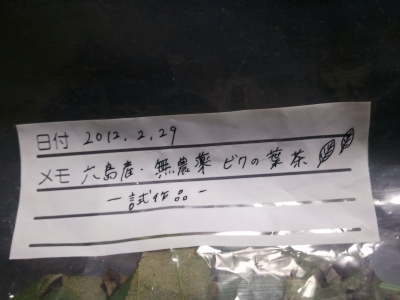 日付 2012.2.29
メモ 六島産・無農薬 ビワの葉茶
ー試作品ー